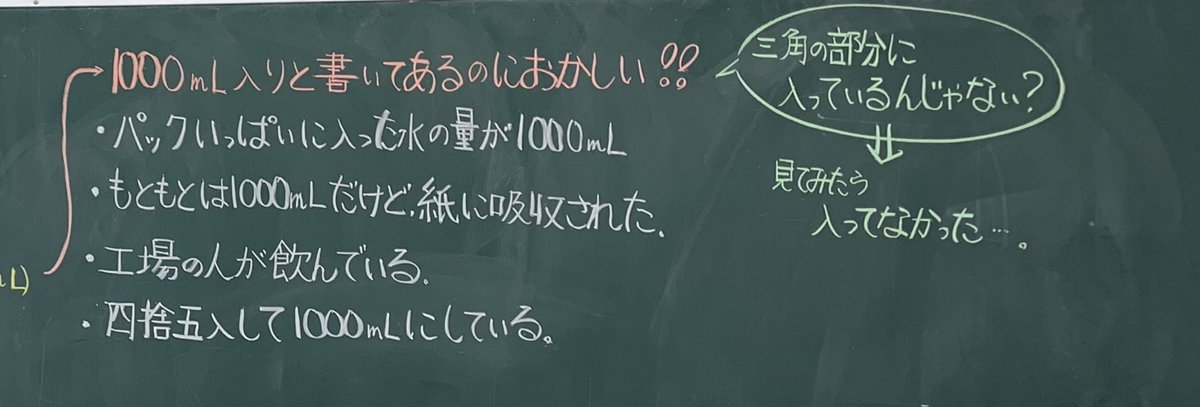 1000mL入りと書いてあるのにおかしい!!
・パックいっぱいに入った水の量が1000mL
・もともとは1000mLだけど、紙に吸収された.
・工場の人が飲んでいる.
・四捨五入して1000mLにしている。
L)
三角の部分に
入っているんじゃない?
見てみたら
入ってなかった…。